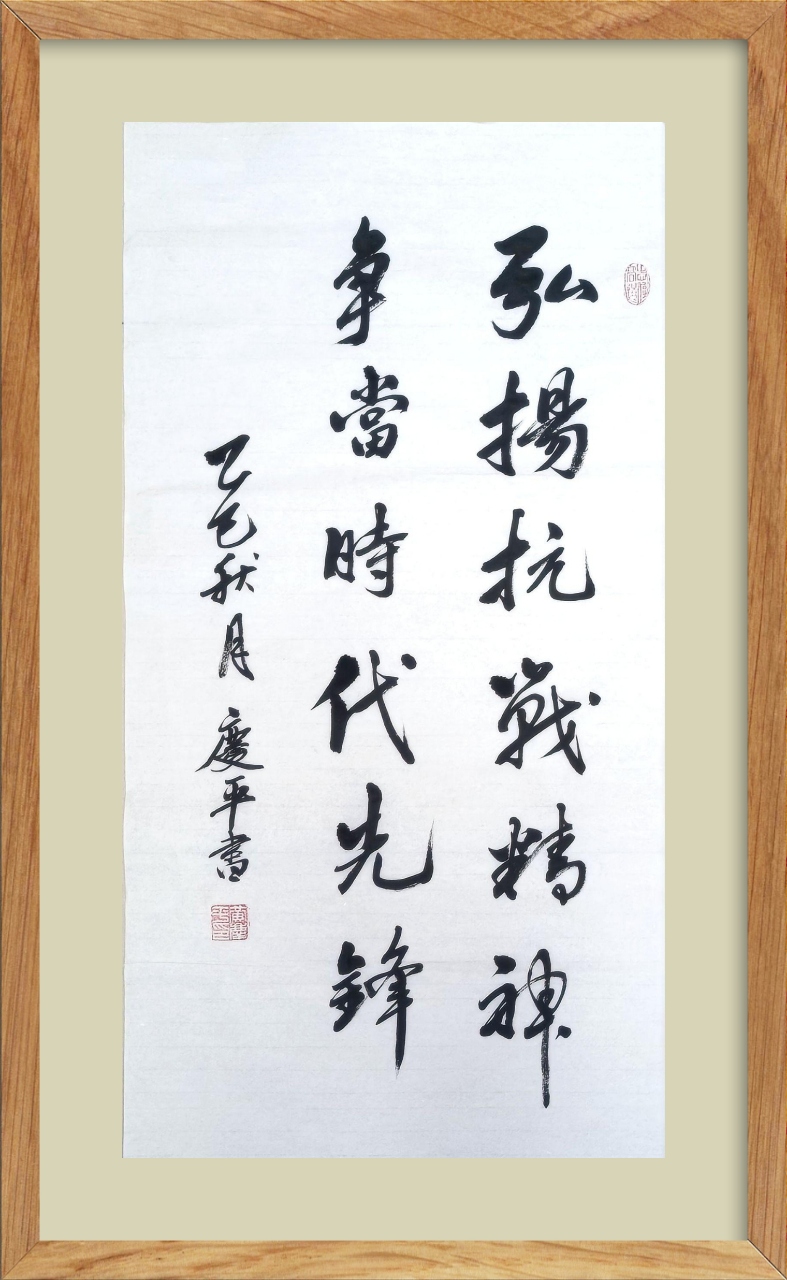 弘揚抗戰精神
争當時代先鋒
乙巳秋月 慶平書